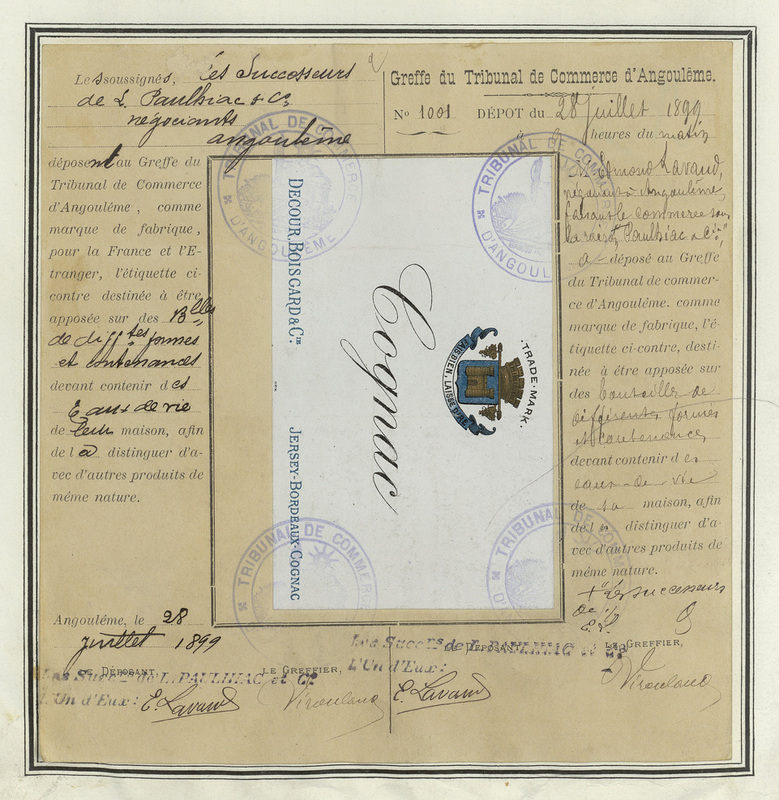 Les soussignés, les Successeurs
de L. Paulhiac & Cie
négociants
angoulême
déposent au Greffe du
Tribunal de Commerce
d'Angoulême, comme
marque de fabrique,
pour la France et l'E-
tranger, l'étiquette ci-
contre destinée à être
apposée sur des Blles
de difftes formes
et contenances
devant contenir des
Eaux de vie
de leur maison, afin
de la distinguer d'a-
vec d'autres produits de
même nature.
Angoulême, le 28
juillet 1899
DÉPOSANT LE GREFFIER,
Les Succrs de L. PAULHIAC et Cie
L'Un d'Eux: E. Lavaud
Greffe du Tribunal de Commerce d'Angoulême.
No 1001 DÉPOT du 28 juillet 1899
à heures du matin
Edmond Lavaud,
négociant à Angoulême,
faisant le commerce sous
la raison Paulhiac & Cie
a déposé au Greffe
du Tribunal de commer-
ce d'Angoulême. comme
marque de fabrique, l'é-
tiquette ci-contre, desti-
née à être apposée sur
des bouteilles de
différentes formes
et contenances
devant contenir des
eaux-de-vie
de sa maison, afin
de la distinguer d'a-
vec d'autres produits de
même nature.
les successeurs
de
E. L.
DÉPOSANT LE GREFFIER,
Les Succrs de L. PAULHIAC et Cie
L'Un d'Eux:
E. Lavaud
TRADE-MARK.
FAIS BIEN, LAISSE DIRE
Cognac
DECOUR, BOISGARD & Cie
JERSEY-BORDEAUX-COGNAC
TRIBUNAL DE COMMERCE
D'ANGOULÊME
TRIBUNAL DE COMMERCE
D'ANGOULÊME
TRIBUNAL DE COMMERCE
TRIBUNAL DE COMMERCE